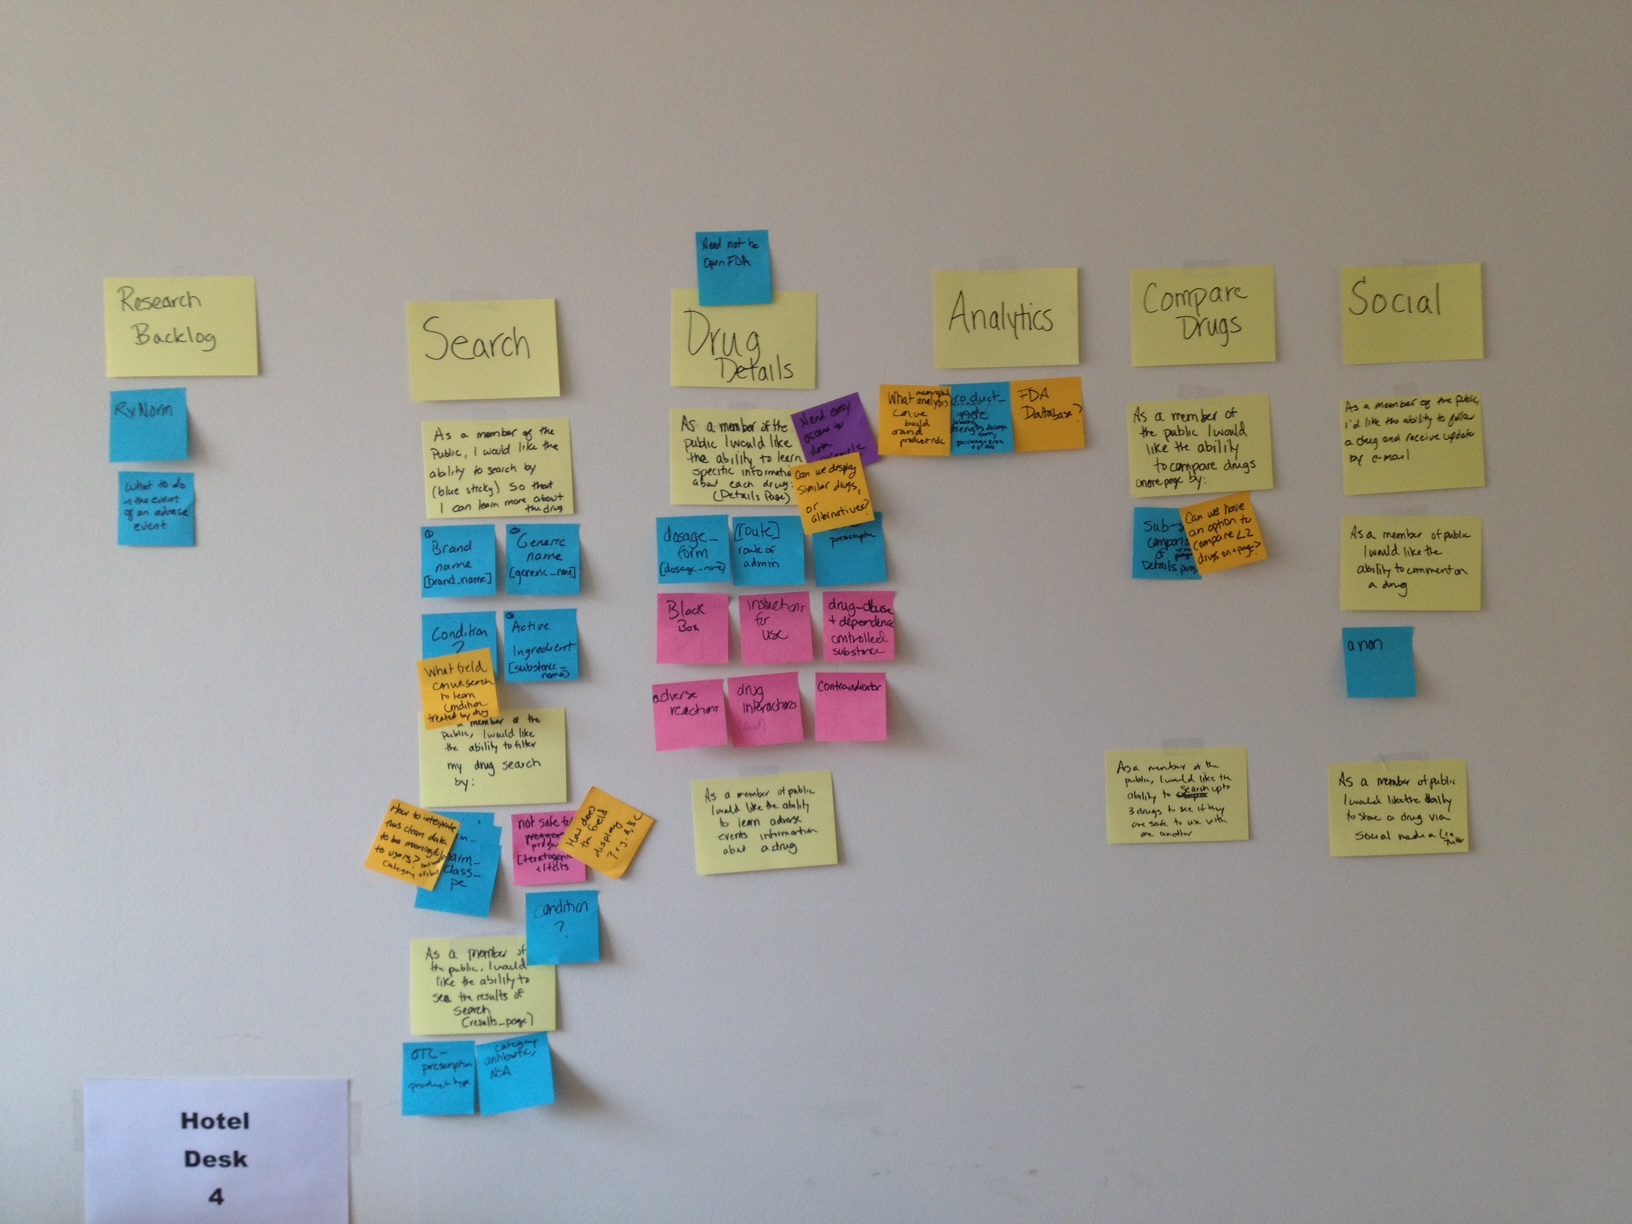 Research
Backlog
RxNorm
What to do
in the event
of an adverse
event
Search
As a member of the
Public, I would like the
ability to search by
(blue sticky) so that
I can learn more about
the drug
Brand
name
[brand_name]
Generic
name
[generic_name]
Condition
?
Active
Ingredient
[substance_
name]
What field
can we search
to learn
condition
treated by drug
member of the
public, I would like
the ability to filter
my drug search
by:
How to interpret
this clean data
to be meaningful
to users?
category
class_
not safe to
[teratogenic
effects
How does
the field
display
? e.g. A, B, C
condition
?
As a member of
the public, I would
like the ability to
see the results of
search
[results_page]
OTC-
prescription
product type
category
antibiotic,
Need not be
Open FDA
Drug
Details
As a member of the
public I would like
the ability to learn
specific information
about each drug:
(Details Page)
Need easy
access to
data
Can we display
similar drugs,
or alternatives?
dosage_
form
[dosage_name]
[route]
route of
admin
Black
Box
instructions
for
use
drug-abuse
+ dependence
controlled
substance
adverse
reactions
drug
interactions
Contraindicator
As a member of public
I would like the ability
to learn adverse
events information
about a drug
Analytics
What meaningful
analytics
can we
build
around
product_
FDA
Database?
Compare
Drugs
As a member of
the public I would
like the ability
to compare drugs
on one page by:
Sub-
of
Details page
Can we have
an option to
compare <2
drugs on a page?
As a member of the
public, I would like the
ability to search up to
3 drugs to see if they
are safe to use with
one another
Social
As a member of the public
I'd like the ability to follow
a drug and receive update
by e-mail
As a member of public
I would like the
ability to comment on
a drug
anon
As a member of public
I would like the ability
to share a drug via
Social media
Hotel
Desk
4